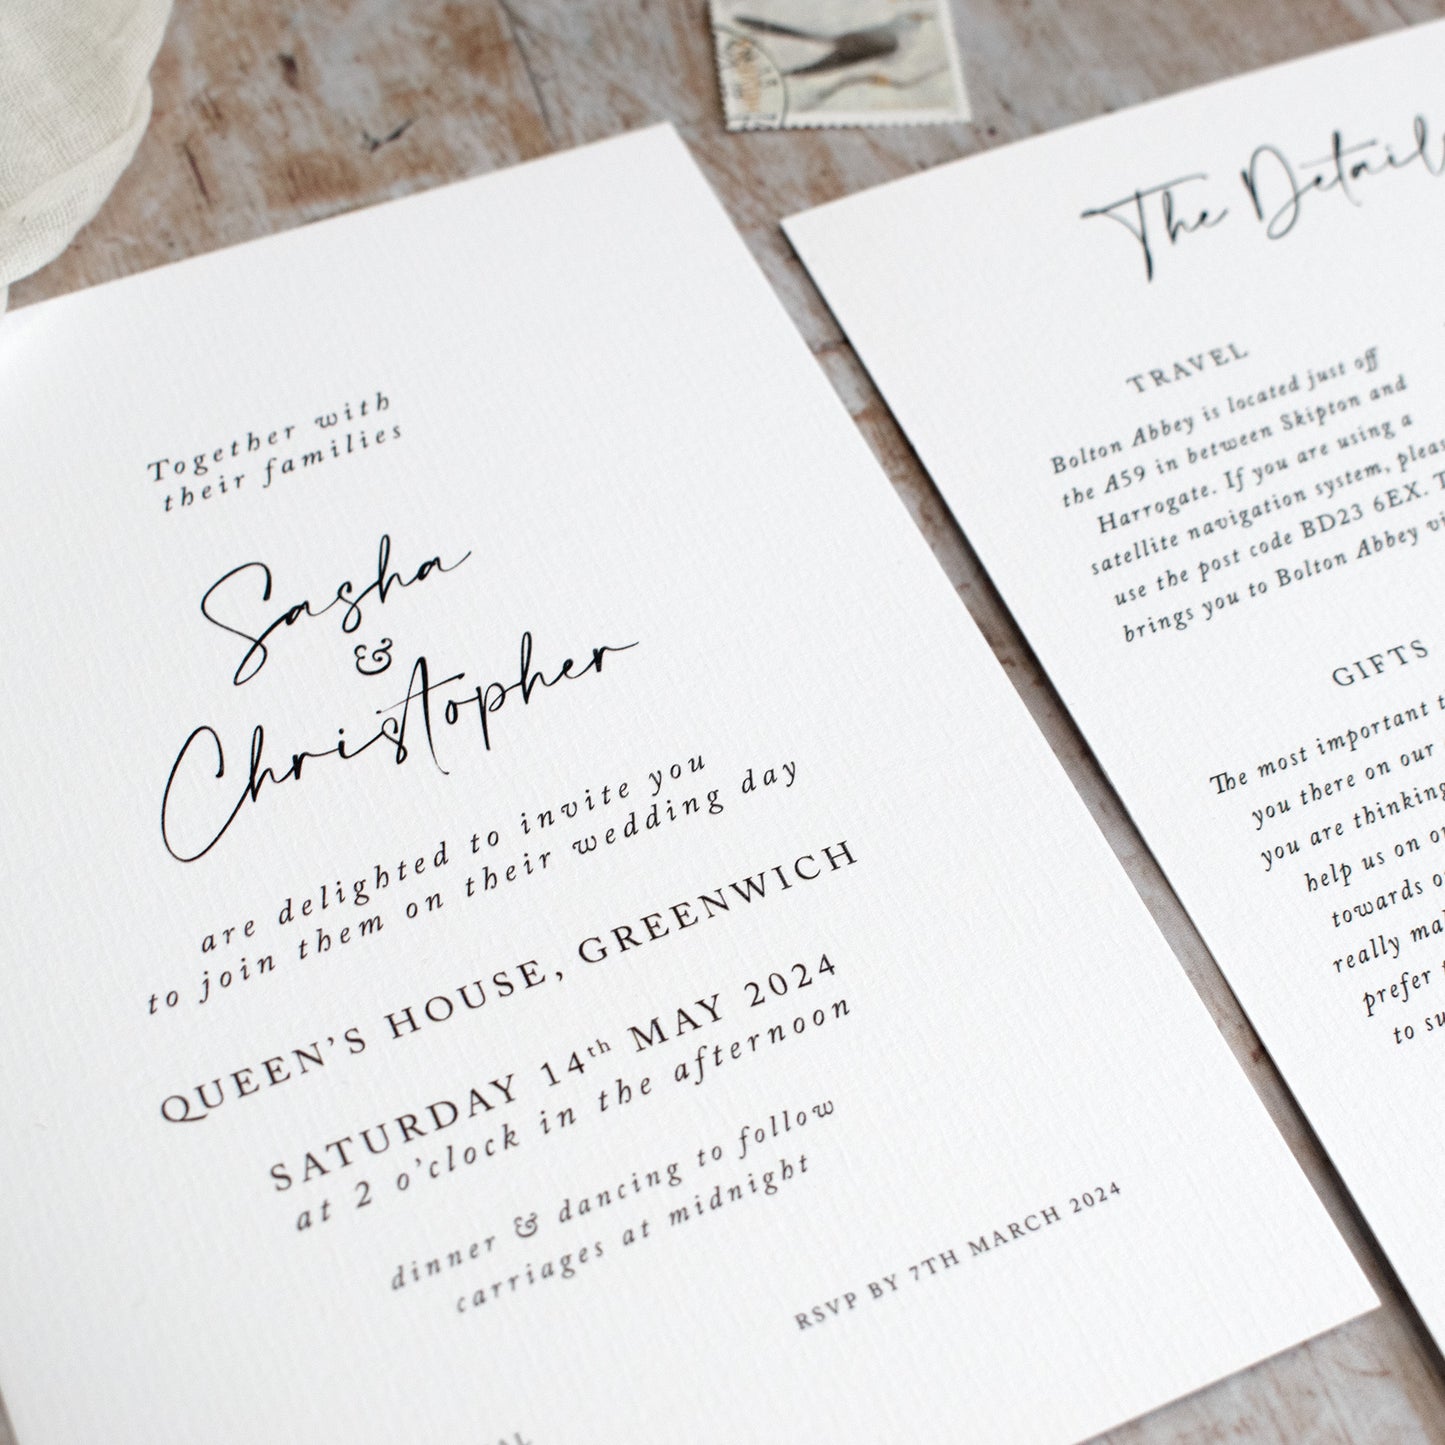 Together with
their families
Sasha
&
Christopher
are delighted to invite you
to join them on their wedding day
QUEEN'S HOUSE, GREENWICH
SATURDAY 14th MAY 2024
at 2 o'clock in the afternoon
dinner & dancing to follow
carriages at midnight
RSVP BY 7TH MARCH 2024
The Detail
TRAVEL
Bolton Abbey is located just off
the A59 in between Skipton and
Harrogate. If you are using a
satellite navigation system,
use the post code BD23 6EX.
brings you to Bolton Abbey
GIFTS
The most important
you there on our
you are thinking
help us on
towards
really
prefer
to